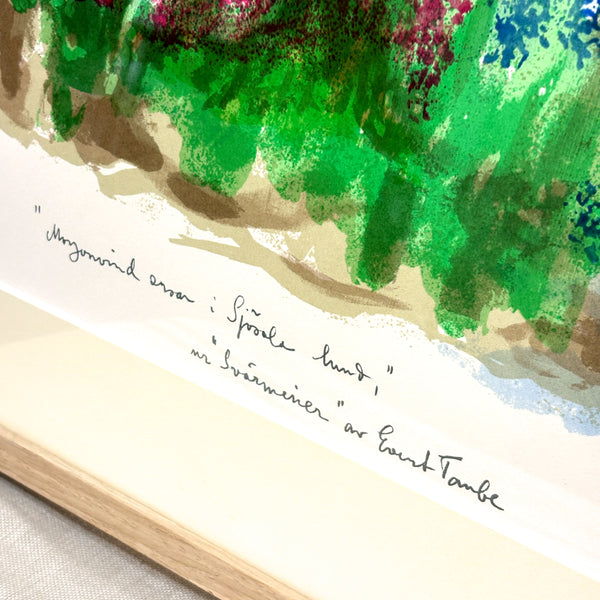 "Morgonvind susar i Sjösala lund,"
ur "Svärmerier" av Evert Taube